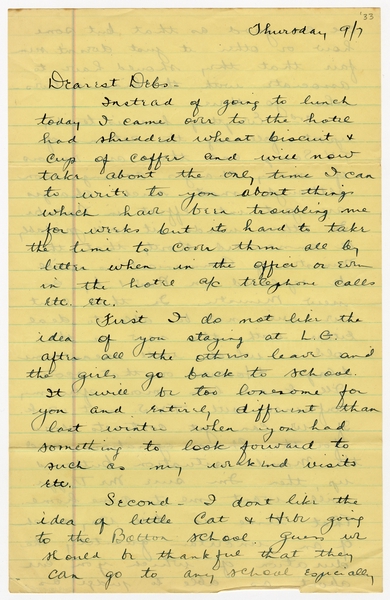 '33
Thursday 9/7
Dearest Debs-
Instead of going to lunch
today I came over to the hotel
had shredded wheat biscuit &
cup of coffee and will now
take about the only time I can
to write to you about things
which have been troubling me
for weeks but its hard to take
the time to cover them all by
letter when in the office or even
in the hotel a/c telephone calls
etc. etc.
First I do not like the
idea of you staying at L.G.
after all the others leave and
the girls go back to school.
It will be too lonesome for
you and entirely different than
last winter when you had
something to look forward to
such as my weekend visits
etc.
Second - I dont like the
idea of little Cat & Hebe going
to the Bolton school. Guess we
should be thankful that they
can go to any school especially